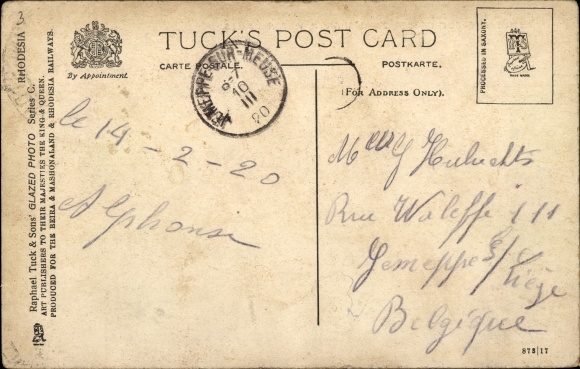 3
RHODESIA
By Appointment.
Raphael Tuck & Sons' GLAZED PHOTO Series C.
ART PUBLISHERS TO THEIR MAJESTIES THE KING & QUEEN.
PRODUCED FOR THE BEIRA & MASHONALAND & RHODESIA RAILWAYS.
TUCK'S POST CARD
CARTE POSTALE.
POSTKARTE.
(FOR ADDRESS ONLY).
PROCESSED IN SAXONY.
JEMEPPE-SUR-MEUSE
10
III
20
le 14-2-20
Alphonse
Rue 111
Jemeppe s/
Liège
Belgique
875|17